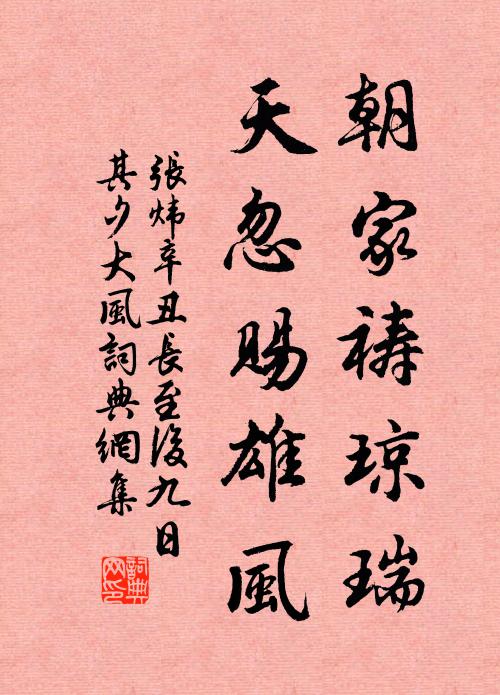 朝家祷琼瑞
天忽賜雄風
張炜辛丑長至後九日
其夕大風詞典網集
詞典
网印